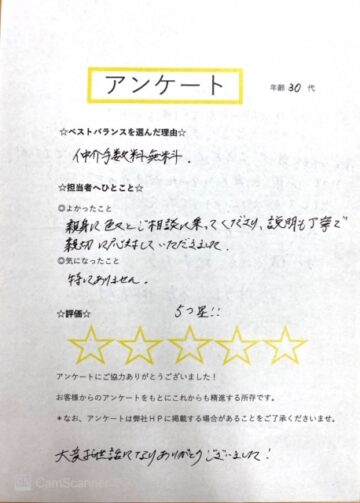 アンケート
年齢 30 代
☆ベストバランスを選んだ理由☆
仲介手数料無料.
☆担当者へひとこと☆
◎よかったこと
親身に色々とご相談に乗ってくださり、説明も丁寧で
親切に対応していただきました.
◎気になったこと
特にありません.
☆評価☆
5つ星!!
アンケートにご協力ありがとうございました！
お客様からのアンケートをもとにこれからも精進する所存です。
＊なお、アンケートは弊社ＨＰに掲載する場合があることをご了承くださいませ。
大変お世話になりありがとうございました!
CamScanner